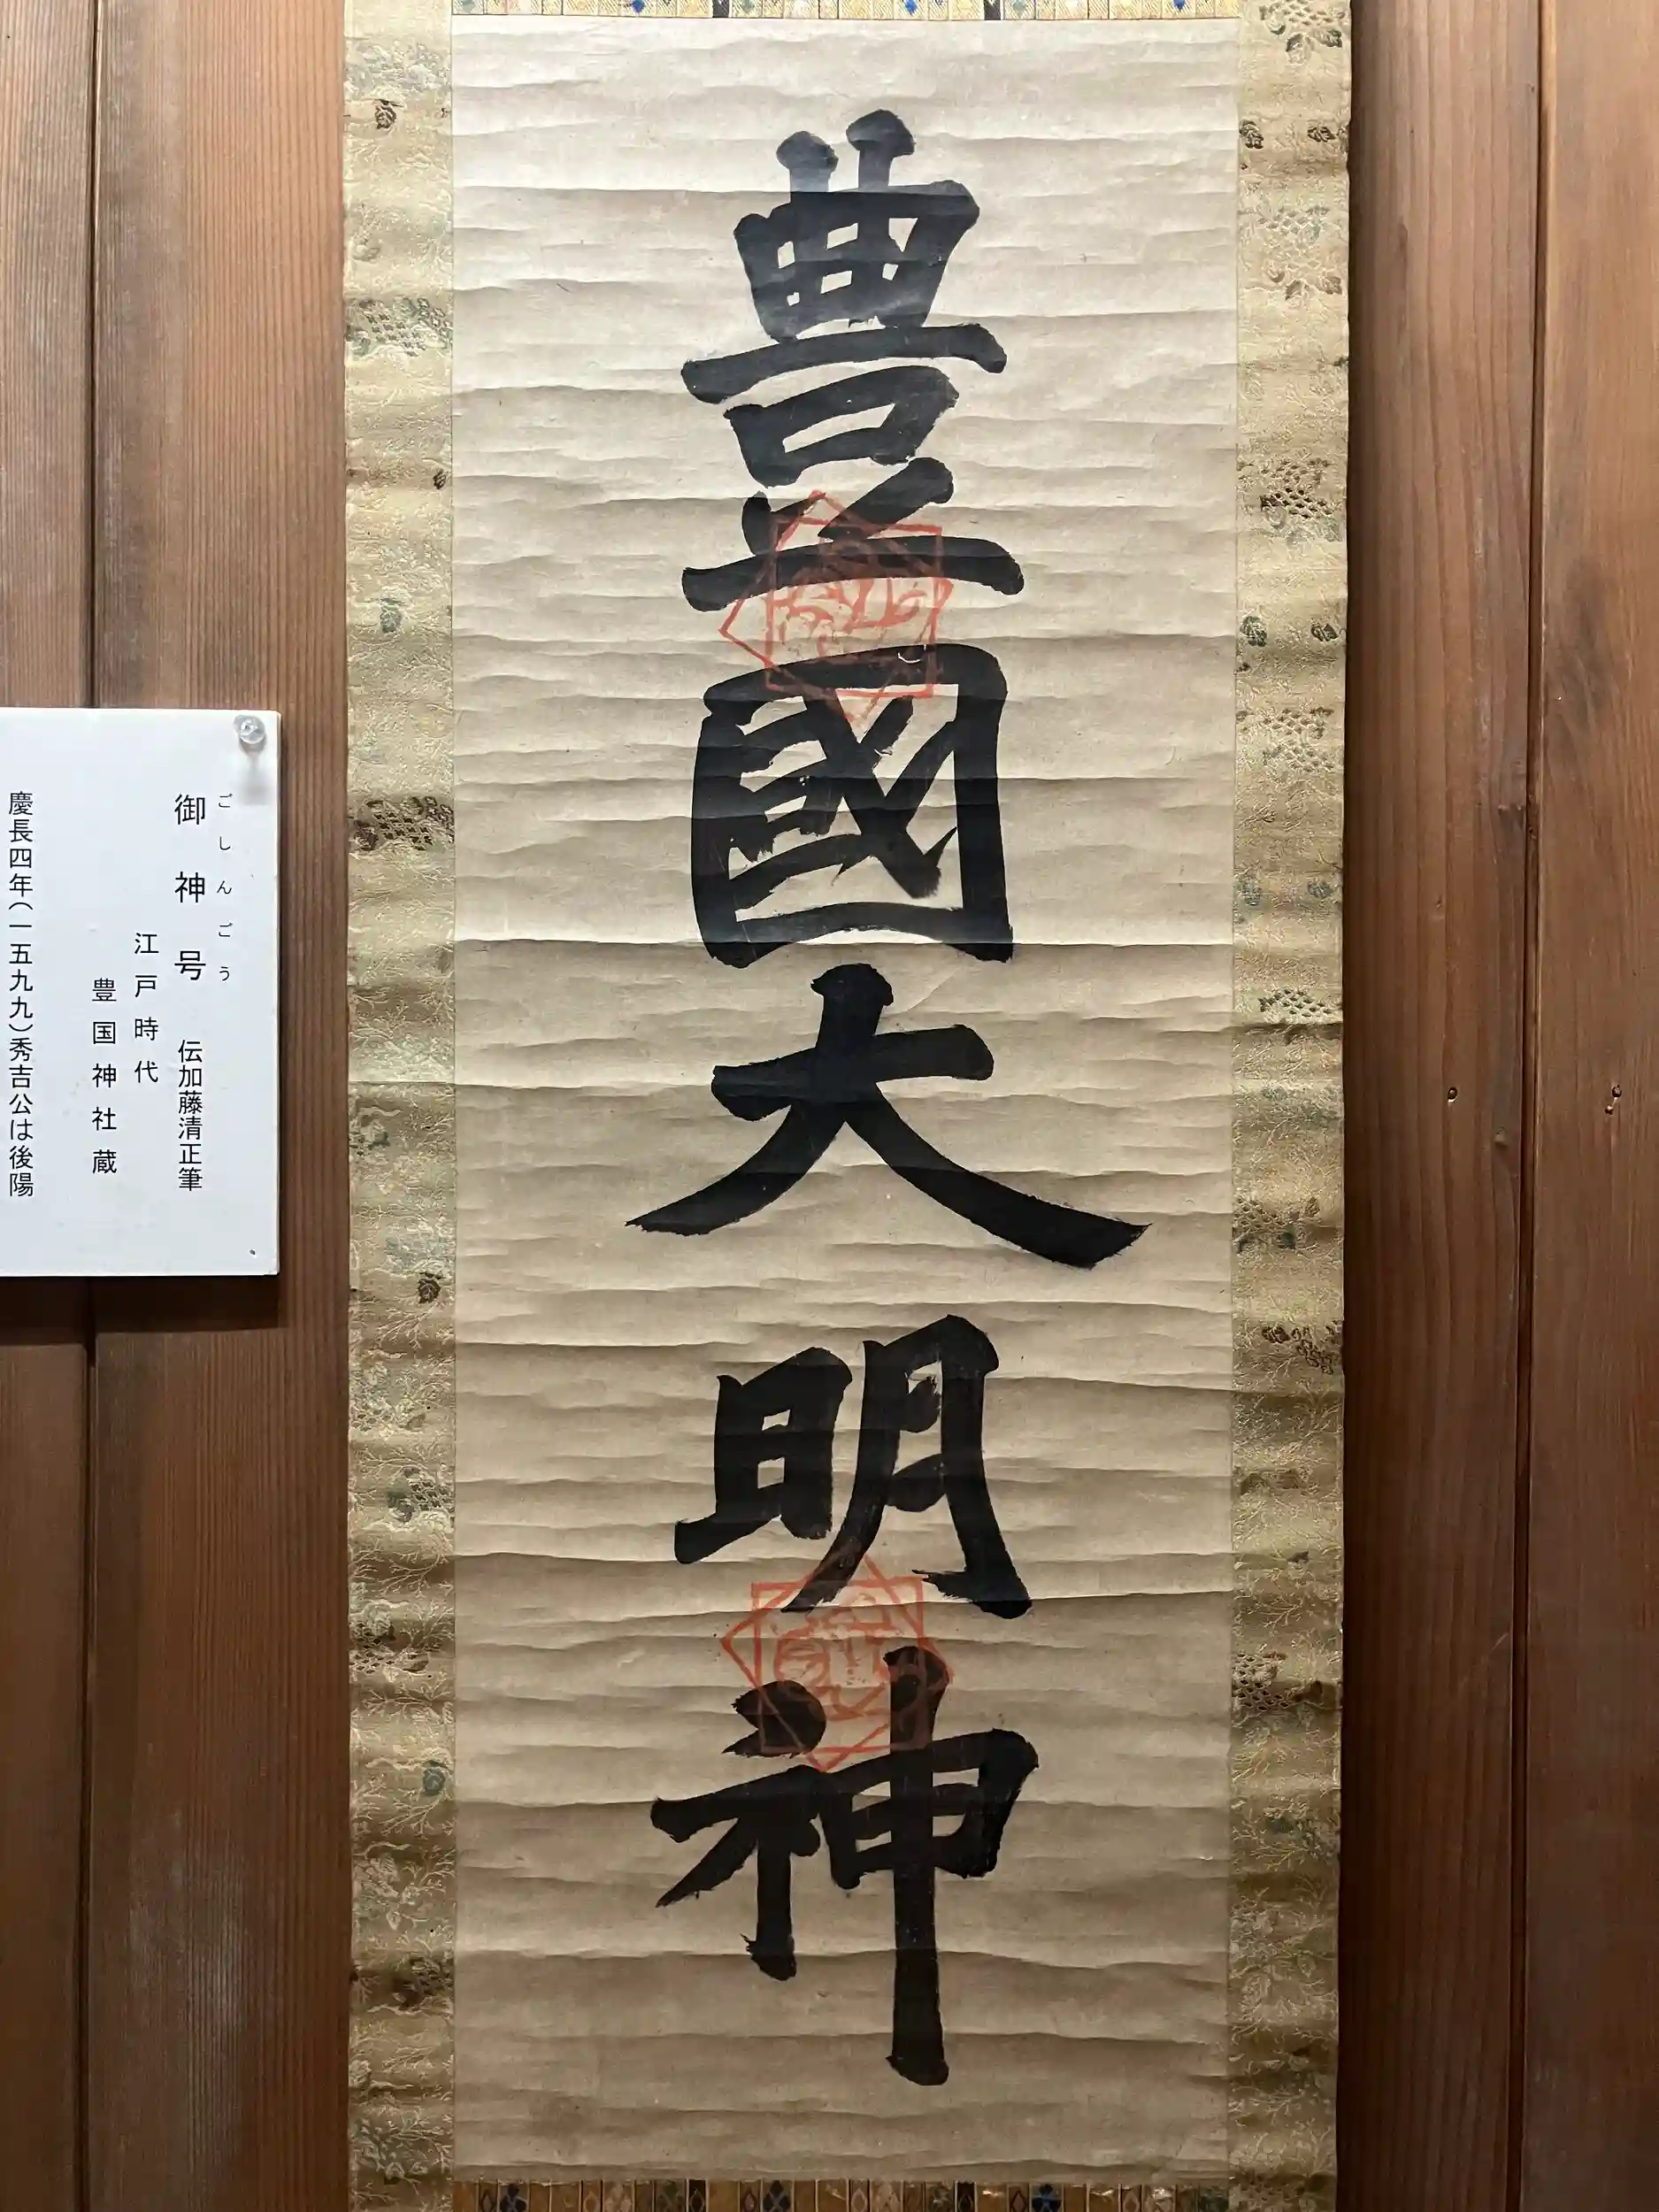 豊國大明神
ごしんごう
御神号 伝加藤清正筆
江戸時代
豊国神社蔵
慶長四年(一五九九)秀吉公は後陽